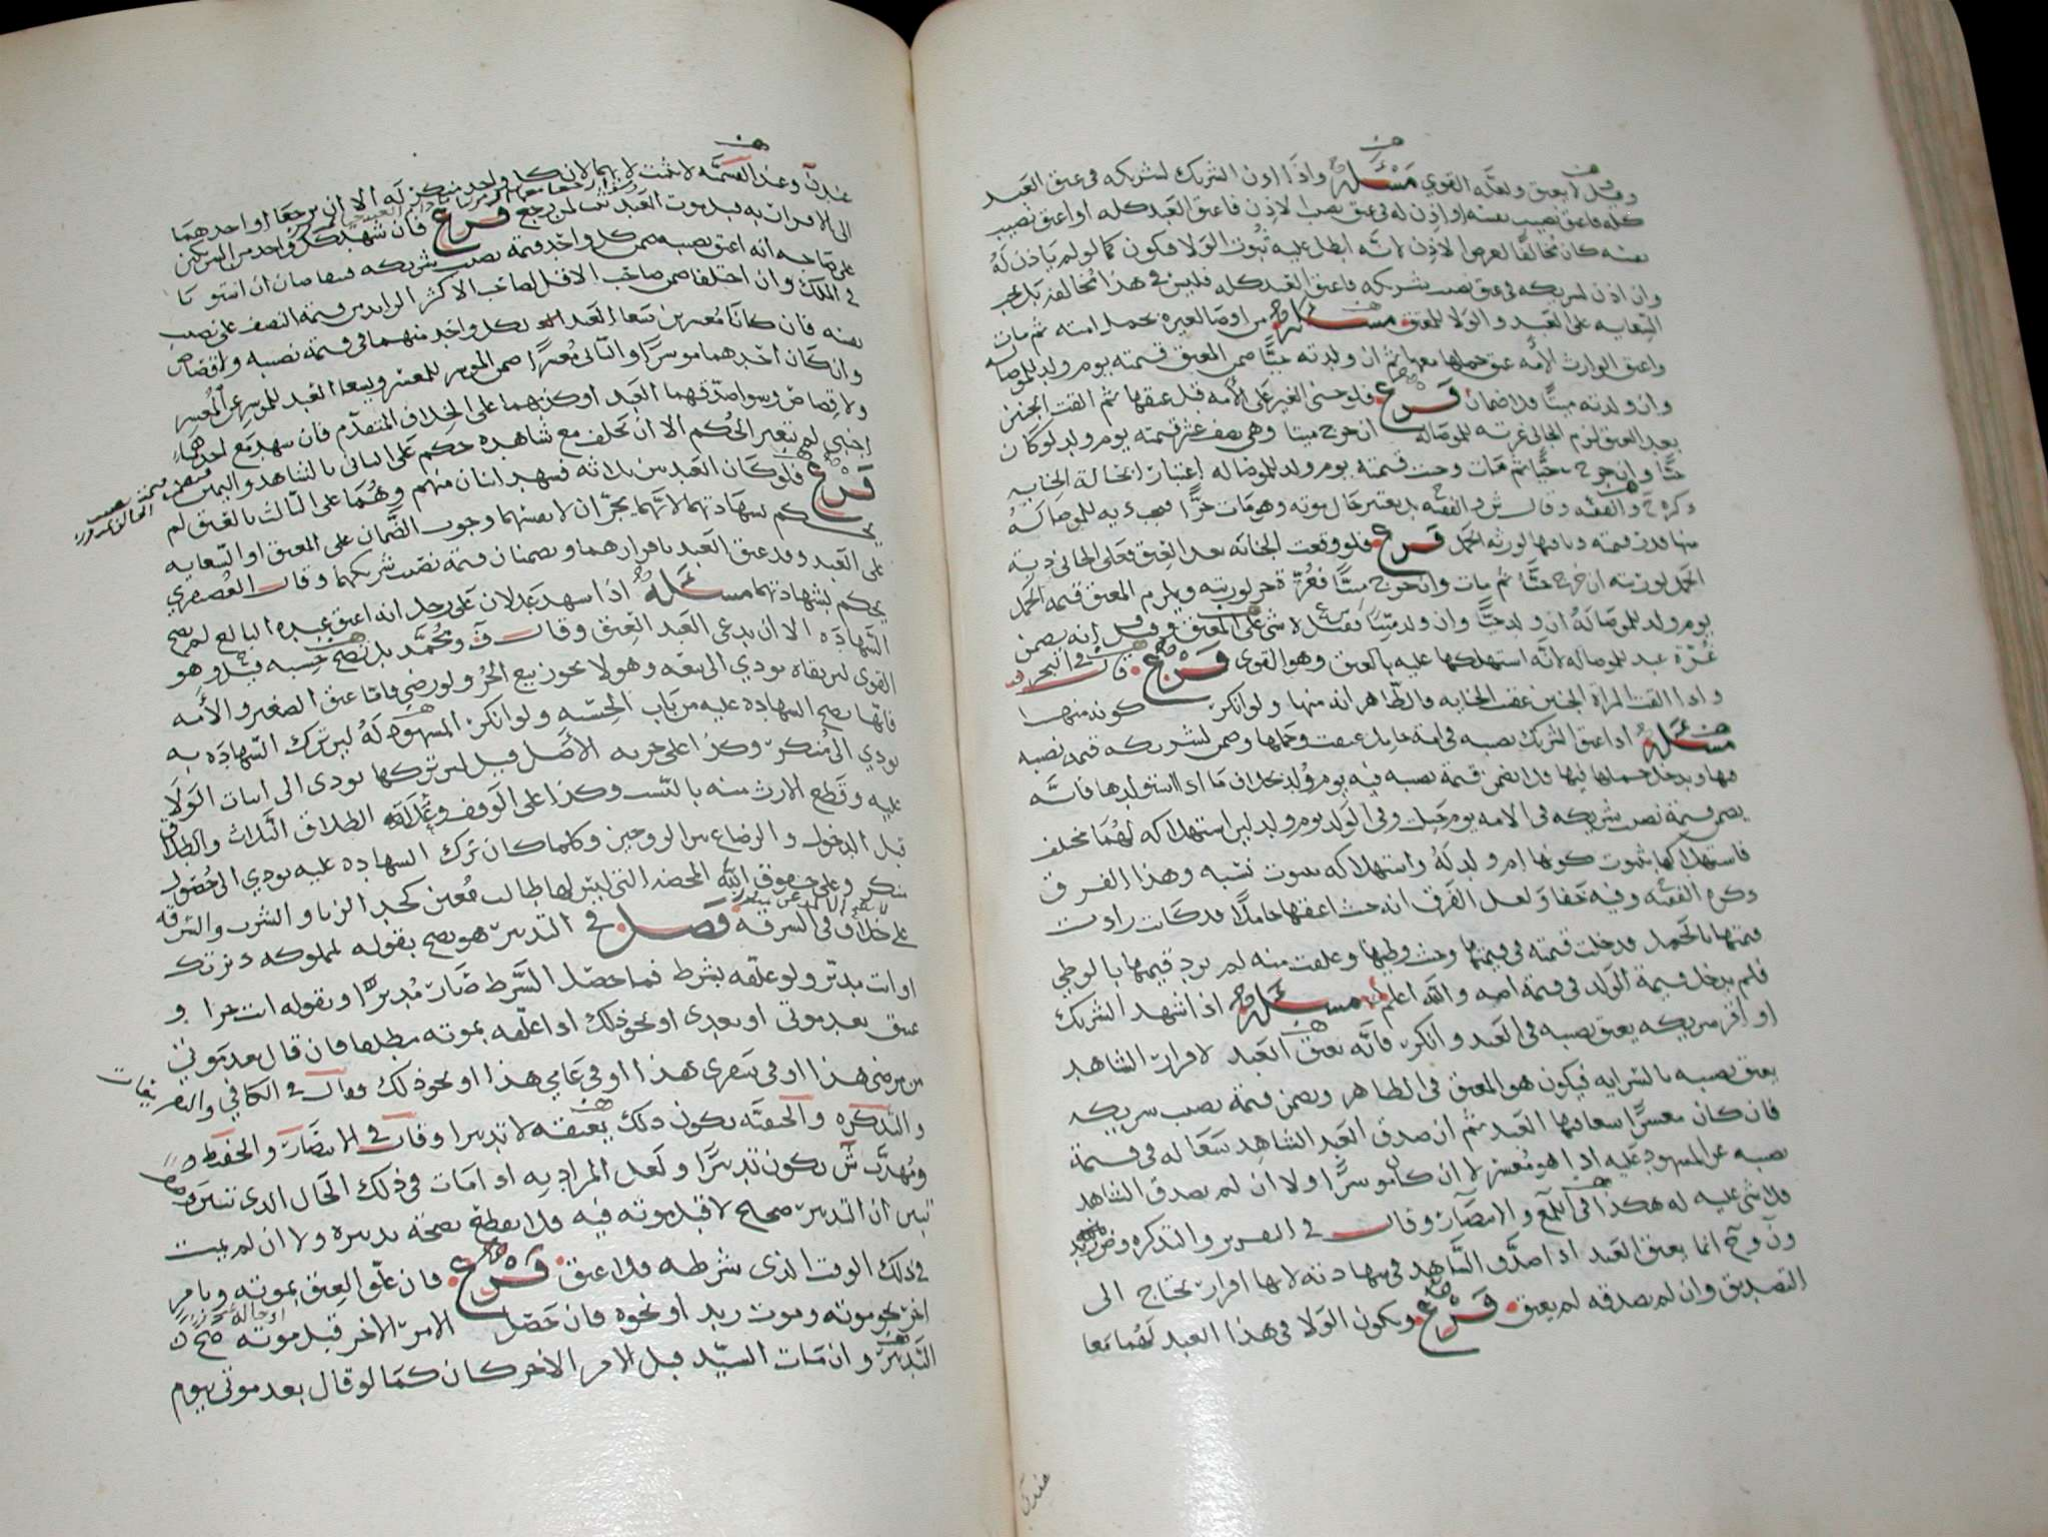 وقيل لا يعتق ولعله القوي مسئلة واذا اذن الشريك لشريكه في عتق العبد
كله فاعتق نصيب نفسه او اذن له في عتق نصيب الاذن فاعتق العبد كله او اعتق نصيب
نفسه كان مخالفا لغرض الاذن لانه ابطل عليه ثبوت الولا فيكون كما لو لم ياذن له
وان اذن لشريكه في عتق نصيب شريكه فاعتق العبد كله فليس في هذا مخالفة بل تجب
السعايه على العبد والولا للمعتق مسئلة من اوصا لغيره بحمل امته ثم مات
واعتق الوارث الأمه عتق حملها معها ثم ان ولدته حيًّا ضمن المعتق قيمته يوم ولد للموصا له
وان ولدته ميتًا فلا ضمان فرع فلو جنى الغير على الأمه قبل عتقها ثم القت الجنين
بعد العتق لزم الجاني غرته للموصا له ان خرج ميتا وهي نصف عشر قيمته يوم ولد لو كان
حيًّا وان خرج حيًّا ثم مات وجبت قيمته يوم ولد للموصا له اعتبارًا بحالة الجنايه
ذكره ح والفقيه وقال ش والفقيه بل يعتبر حال موته وهو مات حرًّا فيجب ديه للموصا له
منها قدر قيمته وباقيها لورثة الحمل فرع فلو وقعت الجنايه بعد العتق فعلى الجاني دية
الحمل لورثته ان خرج حيًّا ثم مات وان خرج ميتًا فغرّة حر لورثته ويلزم المعتق قيمة الحمل
يوم ولد للموصا له ان ولد حيًّا وان ولد ميّتًا فقيل لا شي على المعتق وقيل انه يضمن
غرّة عبد للموصا له لانّه استهلكها عليه بالعتق وهو القوي فرع قال في البحر
واذا القت المراة الجنين عقيب الجنايه فالظاهر انه منها ولو انكر كونه منها
مسئلة اذا اعتق الشريك نصيبه في امة حامل عتقت وحملها وضمن لشريكه قيمة نصيبه
فيها ويدخل حملها فيها فلا يضمن قيمة نصيبه فيه يوم وُلد بخلاف ما اذا استولدها فانّه
يضمن قيمة نصيب شريكه في الامه يوم حبلت وفي الولد يوم ولد لان استهلاكه لهما مختلف
فاستهلاكها بثبوت كونها ام ولد له واستهلاكه بثبوت نسبه وهذا الفرق
ذكره الفقيه وفيه خفا ولعل الفرق انه حيث اعتقها حاملًا قد كانت زادت
قيمتها بالحمل فدخلت قيمته في قيمتها وحيث وطيها وعلقت منه لم تزد قيمتها بالوطي
فلم يدخل قيمة الولد في قيمة امه والله اعلم مسئلة اذا شهد الشريك
او اقر شريكه بعتق نصيبه في العبد وانكر فانّه يعتق العبد لاقرار الشاهد
بعتق نصيبه بالسرايه فيكون هو المعتق في الظاهر ويضمن قيمة نصيب شريكه
فان كان معسرًا سعا فيها العبد ثم ان صدق العبد الشاهد سعا له في قيمة
نصيبه عن المشهود عليه اذا هو معسر لا ان كان موسرًا ولا ان لم يصدق الشاهد
فلا شي عليه له هكذا في اللمع والانتصار وقال في التقرير والتذكره
ون و ح انما يعتق العبد اذا صدّق الشاهد في شهادته لانها اقرار يحتاج الى
التصديق وان لم يصدقه لم يعتق فرع ويكون الولا في هذا العبد لهما معا
عندن
عندن وعند القسمه لا يثبت لايهما لان كل واحد منكر له الا ان يرجعا او احدهما
الى الاقرار به قبل موت العبد ثبت لمن رجع فرع فان شهد كل واحد من الشريكين
على صاحبه انه اعتق نصيبه ضمن كل واحد قيمة نصيب شريكه فيتقاصان ان استويا
في الملك وان اختلفا ضمن صاحب الاقل لصاحب الاكثر الزايد من قيمة النصف على نصيب
نفسه فان كانا معسرين سعا العبد لكل واحد منهما في قيمة نصيبه ولا قصاص
وان كان احدهما موسرًا والثاني معسرًا ضمن الموسر للمعسر ويسعا العبد للموسر عن المعسر
ولا قصاص وسوا صدّقهما العبد او كذبهما على الخلاف المتقدّم فان شهد مع احدهما
اجنبي لم يتغير الحكم الا ان يحلف مع شاهده حكم على الثاني بالشاهد واليمين
فرع فلو كان العبد بين ثلاثه فشهد اثنان منهم وهُما على الثالث بالعتق لم
يحكم بشهادتهما لانهما يجران لانفسهما وجوب الضّمان على المعتق او السّعايه
على العبد وقد عتق العبد باقرارهما ويضمنان قيمة نصيب شريكهما وقال العُصيفري
يحكم بشهادتهما مسئلة اذا شهد عدلان على رجل انه اعتق عبده البالغ لم تصح
الشهاده الا ان يدعي العبد العتق وقال ف ومحمّد بل تصح حسبه قيل وهو
القوي لان بقاه يودي الى بيعه وهو لا يجوز بيع الحُر ولو رضي فامّا عتق الصغير والأمه
فانّها تصح الشهاده عليه من باب الحِسْبه ولو انكر المشهود لهُ لان ترك الشهاده به
يودي الى مُنكر وكذا على حرية الأصل قيل لان تركها يودي الى اثبات الولا
عليه وقطع الارث منه بالنّسب وكذا على الوقف الطلاق الثلاث والطلاق
قبل الدخول والرضاع بين الزوجين وكلما كان ترك الشهاده عليه يودي الى حصول
منكر وعلى حقوق الله المحضه التي ليس لها طالب معين كحد الزنا والشرب والسّرقه
على خلاف في السرقه فصل في التدبير هو يصح بقوله لمملوكه دبرتك
او انت مدبّر ولو علّقه بشرط فمتا حصل الشّرط صار مُدبرًا وبقوله انت حرا و
عتيق بعد موتي او بعدي او نحو ذلك اذا علّقه بموته مطلقا فان قال بعد موتي
من مرضي هذا او في سفري هذا او في عامي هذا او نحو ذلك فقال في الكافي
والتذكره والحنفيّه يكون ذلك يعتقه لا تدبيرا وقال في الانتصار
ومُهذّب ش يكون تدبيرًا ولعل المراد به اذا مات في ذلك الحال الذي
تبين ان التدبير صحيح لا قبل موته فيه فلا يقطع بصحة تدبيره ولا ان لم يمت
في ذلك الوقت الذي شرطه فلا عتق فرع فان علّق العتق بموته وبامر
اخر نحو موته وموت زيد او نحوه فان حصل الامر الاخر قبل موته صح
التدبير وان مات السيّد قبل الامر الاخر كان كما لو قال بعد موتي بيوم